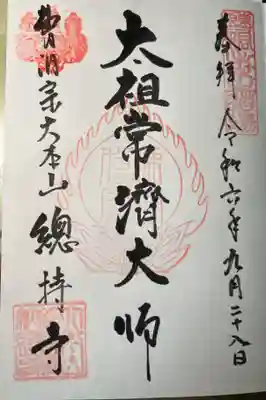 奉拝 令和六年九月二十八日
太祖常濟大師
曹洞宗大本山總持寺